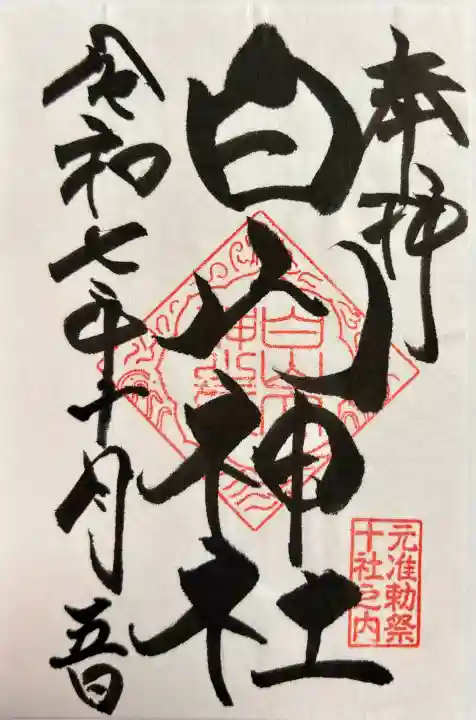 奉拝
白山神社
令和七年十月五日
白山神社
元准勅祭
十社之内